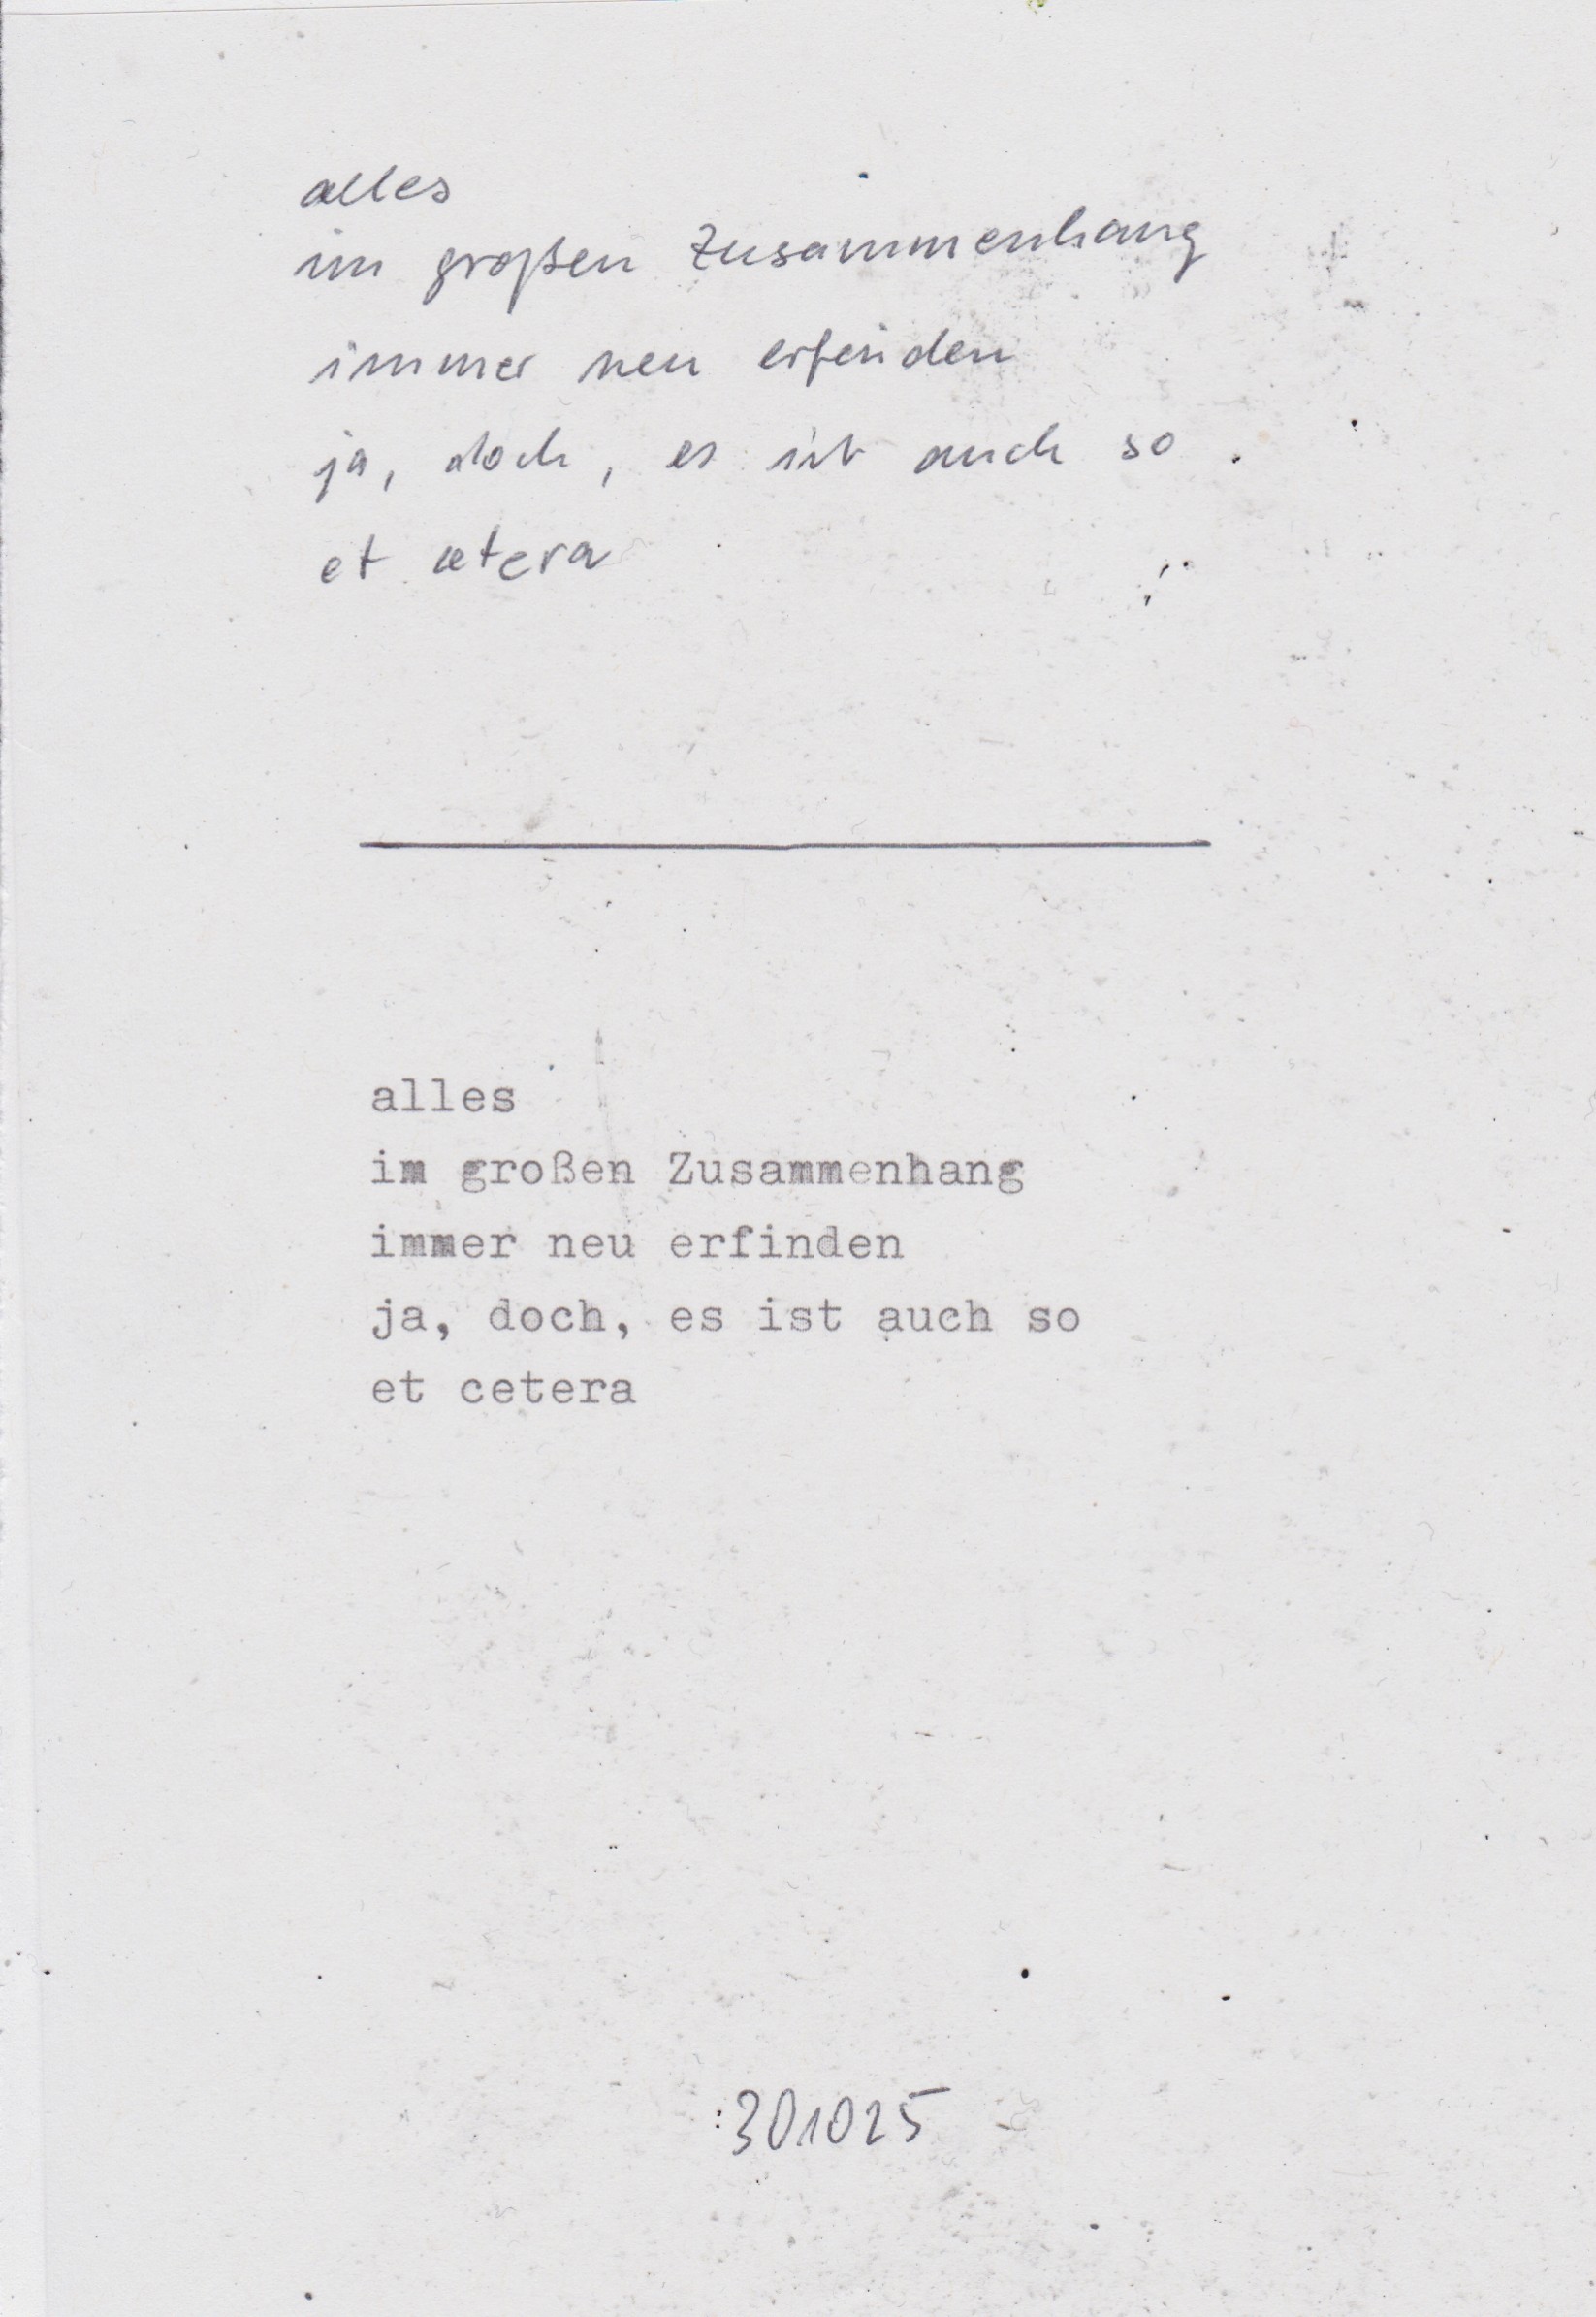 alles
im großen Zusammenhang
immer neu erfinden
ja, doch, es ist auch so
et cetera
alles
im großen Zusammenhang
immer neu erfinden
ja, doch, es ist auch so
et cetera
:301025